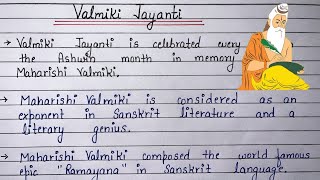 Valmiki Jayanti
→ Valmiki Jayanti is celebrated every
the Ashwin month in memory
Maharishi Valmiki.
→ Maharishi Valmiki is considered as an
exponent in Sanskrit literature and a
literary genius.
→ Maharishi Valmiki composed the world famous
epic "Ramayana" in Sanskrit language.